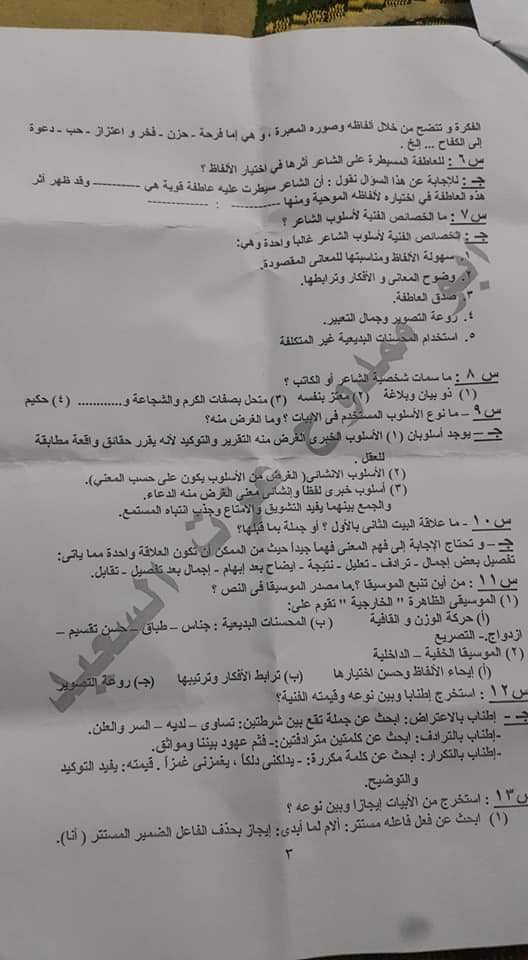 الفكرة و تتضح من خلال ألفاظه وصوره المعبرة ، و هي إما فرحة - حزن - فخر و اعتزاز - حب - دعوة
إلى الكفاح ... إلخ .
س٦ : للعاطفة المسيطرة على الشاعر أثرها في اختيار الألفاظ ؟
جـ : للإجابة عن هذا السؤال نقول : أن الشاعر سيطرت عليه عاطفة قوية هي ---------- وقد ظهر أثر
هذه العاطفة في اختياره لألفاظه الموحية ومنها ---------- : ------------
س٧ : ما الخصائص الفنية لأسلوب الشاعر ؟
جـ : الخصائص الفنية لأسلوب الشاعر غالباً واحدة وهي:
١. سهولة الألفاظ ومناسبتها للمعانى المقصودة.
٢. وضوح المعانى و الأفكار وترابطها.
٣. صدق العاطفة.
٤. روعة التصوير وجمال التعبير.
٥. استخدام المحسنات البديعية غير المتكلفة
س ٨ : ما سمات شخصية الشاعر أو الكاتب ؟
(١) ذو بيان وبلاغة (٢) معتز بنفسه (٣) متحل بصفات الكرم والشجاعة و............ (٤) حكيم
س٩ – ما نوع الأسلوب المستخدم فى الأبيات ؟ وما الغرض منه؟
جـ – يوجد أسلوبان (١) الأسلوب الخبرى الغرض منه التقرير والتوكيد لأنه يقرر حقائق واقعة مطابقة
للعقل .
(٢) الأسلوب الانشائى( الغرض من الأسلوب يكون على حسب المعنى).
(٣) أسلوب خبرى لفظاً وإنشائى معنى الغرض منه الدعاء.
والجمع بينهما يفيد التشويق والامتاع وجذب انتباه المستمع.
س١٠ - ما علاقة البيت الثانى بالأول ؟ أو جملة بما قبلها؟
جـ – و تحتاج الإجابة إلى فهم المعنى فهما جيداً حيث من الممكن أن تكون العلاقة واحدة مما يأتى:
تفصيل بعض إجمال - ترادف - تعليل - نتيجة - ايضاح بعد إبهام - إجمال بعد تفصيل - تقابل.
س١١ : من أين تنبع الموسيقا ؟.ما مصدر الموسيقا فى النص ؟
(١) الموسيقى الظاهرة " الخارجية " تقوم على:
(أ) حركة الوزن و القافية (ب) المحسنات البديعية : جناس – طباق – حسن تقسيم –
ازدواج.- التصريع
(٢) الموسيقا الخفية – الداخلية
(أ) إيحاء الألفاظ وحسن اختيارها (ب) ترابط الأفكار وترتيبها (جـ) روعة التصوير
س١٢ : استخرج إطنابا وبين نوعه وقيمته الفنية؟
جـ - إطناب بالاعتراض: ابحث عن جملة تقع بين شرطتين: تساوى – لديه – السر والعلن.
-إطناب بالترادف: ابحث عن كلمتين مترادفتين:- فثم عهود بيننا ومواثق.
-إطناب بالتكرار: ابحث عن كلمة مكررة: - يدلكنى دلكاً ، يغمزنى غمزاً . قيمته: يفيد التوكيد
والتوضيح.
س١٣ : استخرج من الأبيات إيجازا وبين نوعه ؟
(١) ابحث عن فعل فاعله مستتر: ألام لما أبدى: إيجاز بحذف الفاعل الضمير المستتر ( أنا).
٣